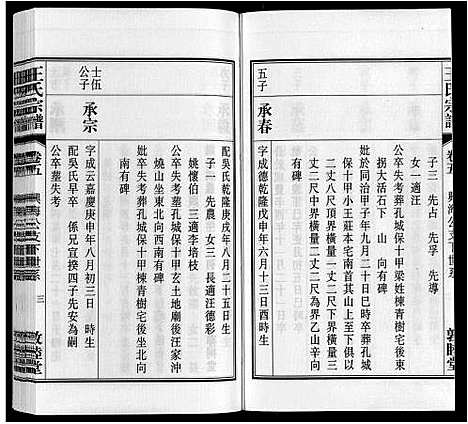 王氏宗譜
卷五
興海公支下世系
子三 先占 先孚 先導
女一 適汪
公卒失考葬孔城保十甲梁姓楝青樹宅後東
拐大活石下 山 向有碑
妣卒乾隆甲子年九月二十日巳時卒葬孔城
保十甲小王莊本宅南首其山上至下長以
一丈二尺下界橫量一丈二尺下界橫量三
丈二尺中界橫量二丈二尺為界乙山辛向
有碑
五子 承春
字成德乾隆戊申年六月十三日酉時生
敦睦堂
王氏宗譜
卷五
興海公支下世系
三
敦睦堂
配吳氏乾隆庚戌年八月二十五日生
子一 先農 女三 長適汪德彩 二適
姚懷伯 三適李培枝
公卒失考葬孔城保十甲玄土地廟後汪家沖
燒山坐東北向西南有碑
妣卒失考葬孔城保十甲楝青樹宅後坐北向
南有碑
士伍公子 承宗
字成云嘉慶庚申年八月初三日 時生
配吳氏早卒 係兄宣揆四子先安為嗣
公卒塟失考